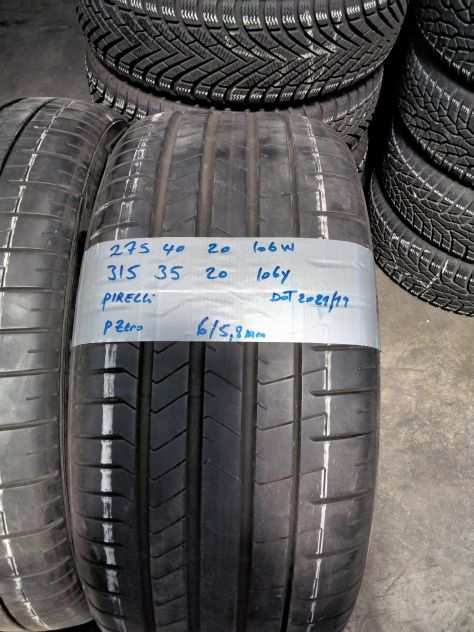 275 40 20 106W
315 35 20 106Y
PiRELLi DOT 2021/19
P Zero 6/5,8mm